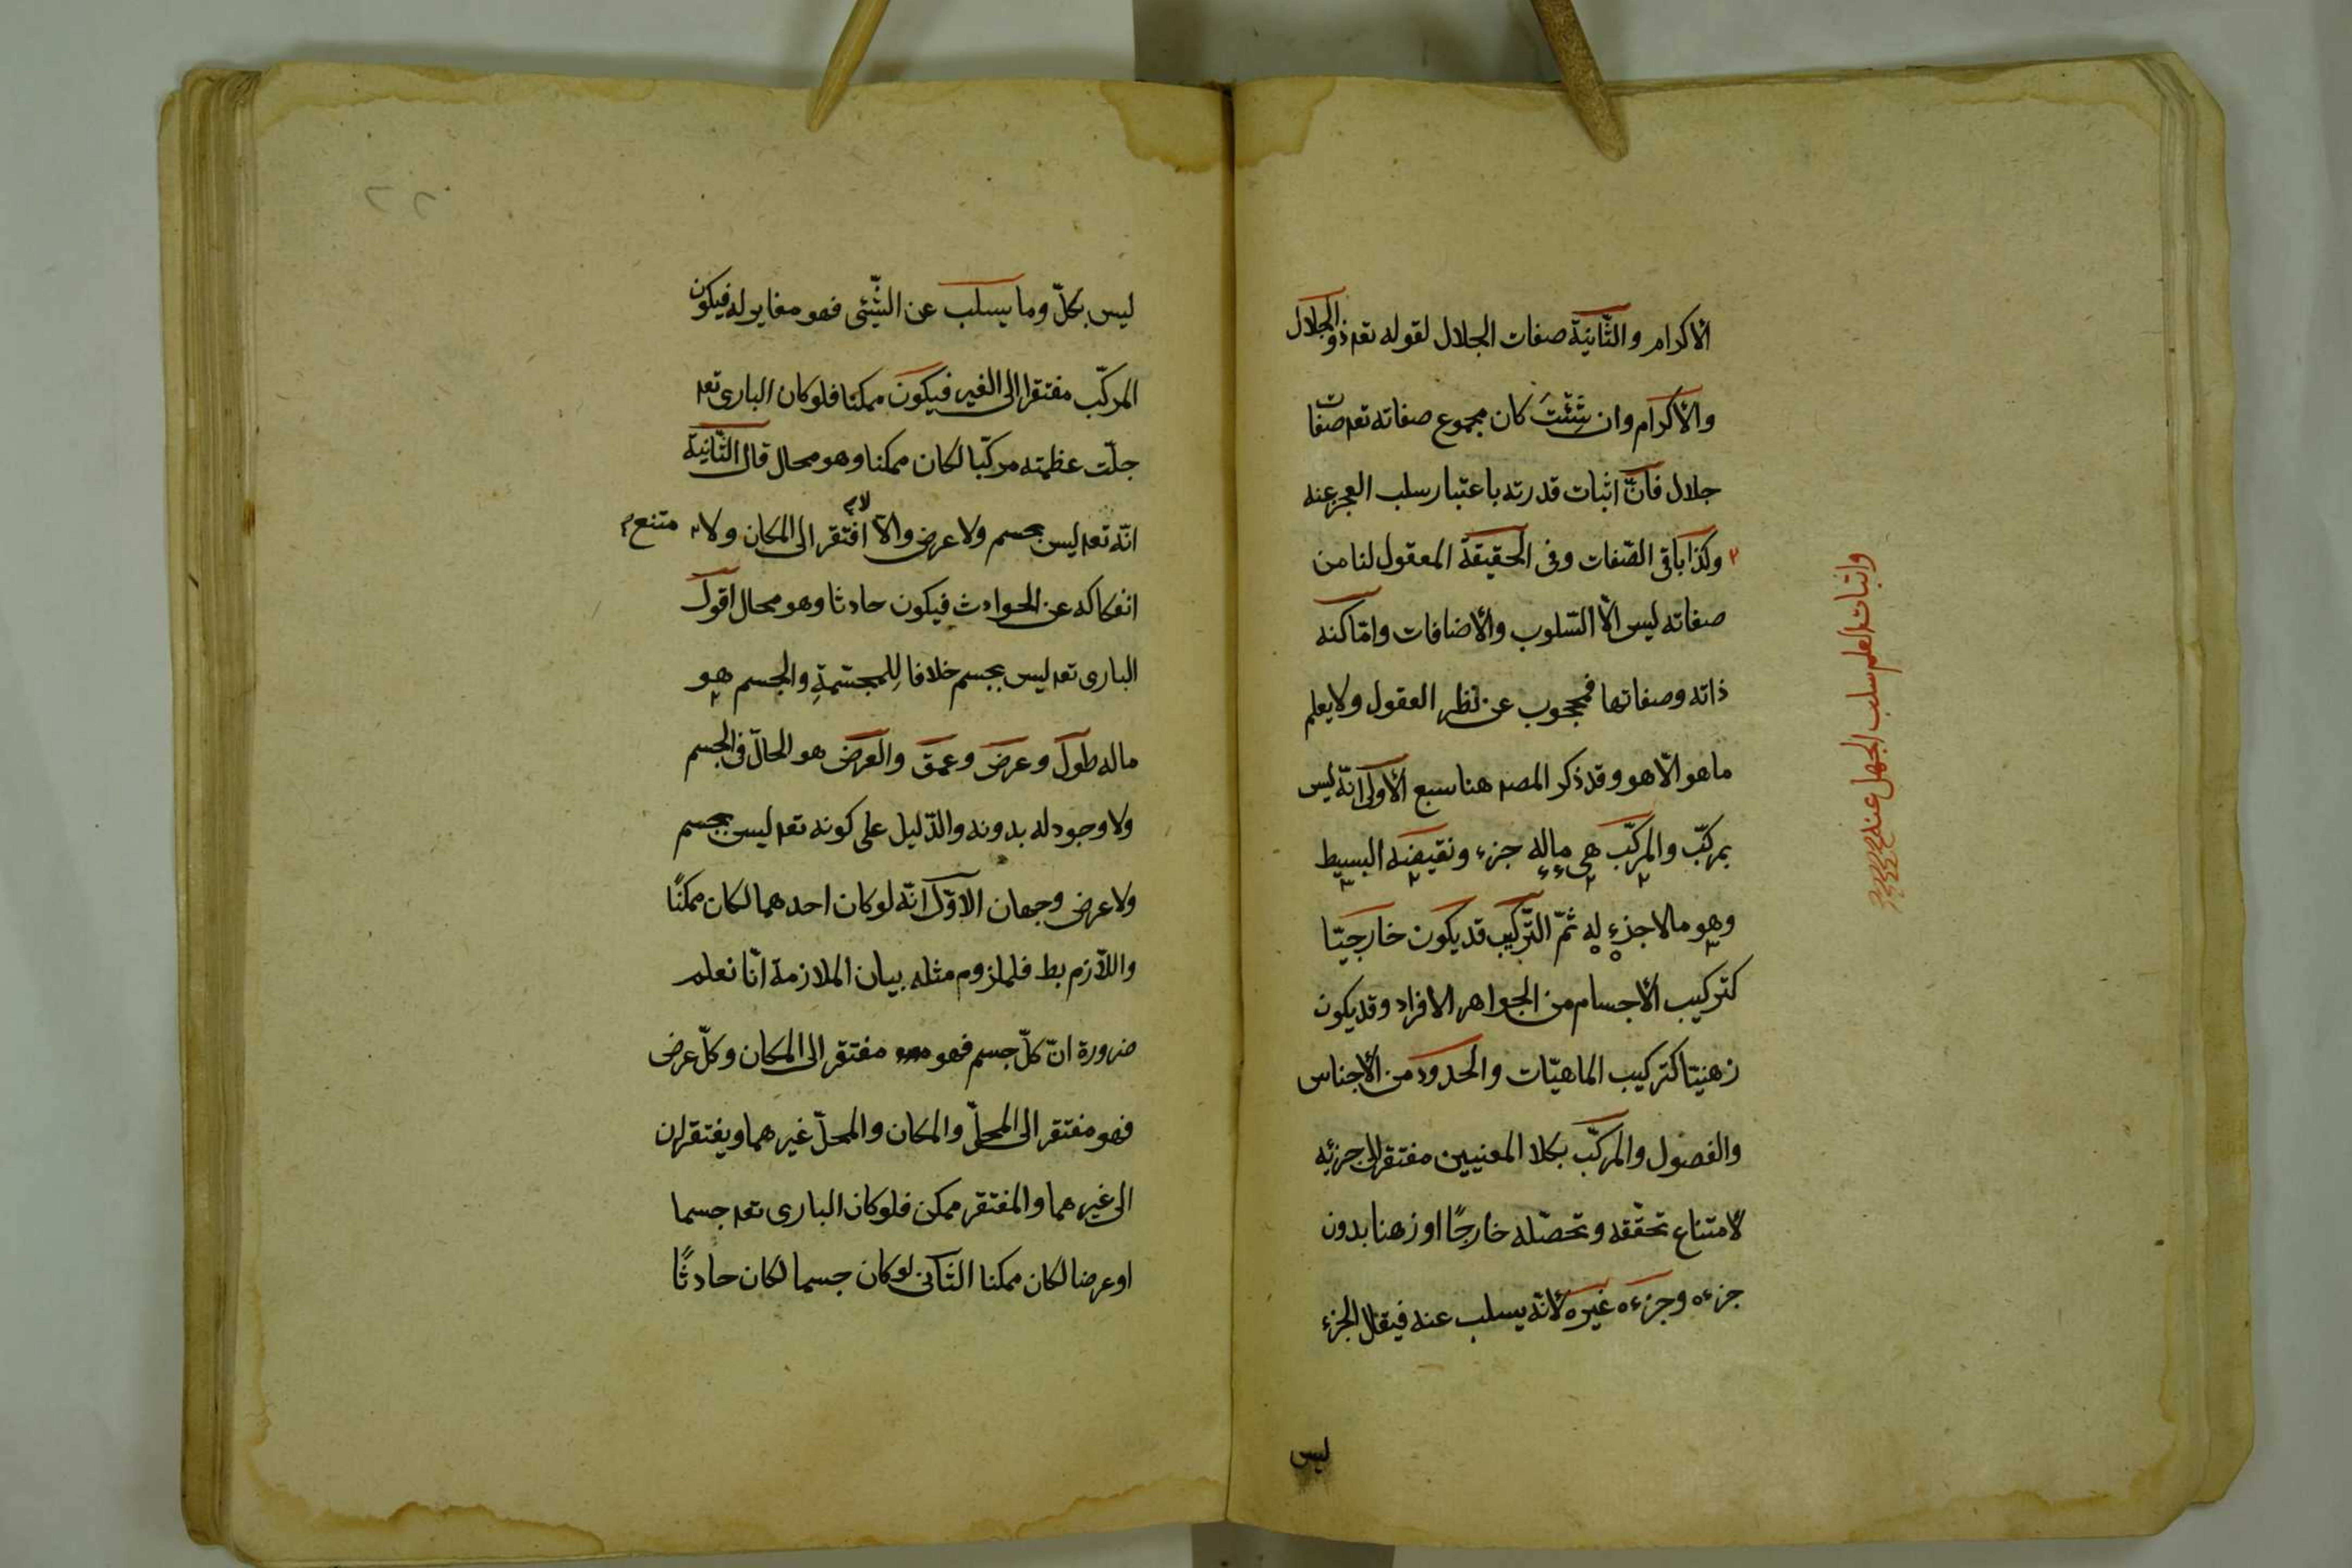 الاكرام والثّانية صفات الجلال لقوله تعه ذو الجلال
والاكرام وان شئت كان مجموع صفاته تعه صفات
جلال فانّ اثبات قدرته باعتبار سلب العجز عنه
وكذا باقى الصّفات وفى الحقيقة المعقول لنا من
صفاته ليس الّا السّلوب والأضافات وامّا كنه
ذاته وصفاتها فمحجوب عن نظر العقول ولا يعلم
ما هو الّا هو وقد ذكر المصه هنا سبع الأولى انّه ليس
بمركّب والمركّب هى ماله جزء ونقيضه البسيط
وهو مالا جزء له ثمّ التّركيب قد يكون خارجيّا
كتركيب الأجسام من الجواهر الافراد وقد يكون
زهنيّا كتركيب الماهيّات والحدود من الأجناس
والفصول والمركّب بكلا المعنيين مفتقر الى جزئه
لامتناع تحقّقه وتحصّله خارجًا او زهنا بدون
جزءه وجزءه غيره لأنّه يسلب عنه فيقال الجزء
ليس
واثبات العلم سلب الجهل عنه
ليس بكلّ وما يسلب عن الشّيئى فهو مغاير له فيكون
المركّب مفتقرا الى الغير فيكون ممكنا فلو كان البارى تعه
جلّت عظمته مركّبا لكان ممكنا وهو محال قال الثّانية
انّه تعه ليس بجسم ولا عرض والّا لافتقر الى المكان ولامتنع
انفكاكه عن الحوادث فيكون حادثا وهو محال اقول
البارى تعه ليس بجسم خلافا للمجسّمة والجسم هو
ماله طول وعرض وعمق والعرض هو الحالّ فى الجسم
ولا وجود له بدونه والدّليل على كونه تعه ليس بجسم
ولا عرض وجهان الاوّل انّه لو كان احدهما لكان ممكنًا
واللّازم بط فلملزوم مثله بيان الملازمة انّا نعلم
ضرورة انّ كلّ جسم فهو مفتقر الى المكان وكلّ عرض
فهو مفتقر الى المحلّ والمكان والمحلّ غيرهما ويفتقران
الى غيرهما والمفتقر ممكن فلو كان البارى تعه جسما
او عرضا لكان ممكنا الثّانى لو كان جسما لكان حادثًا